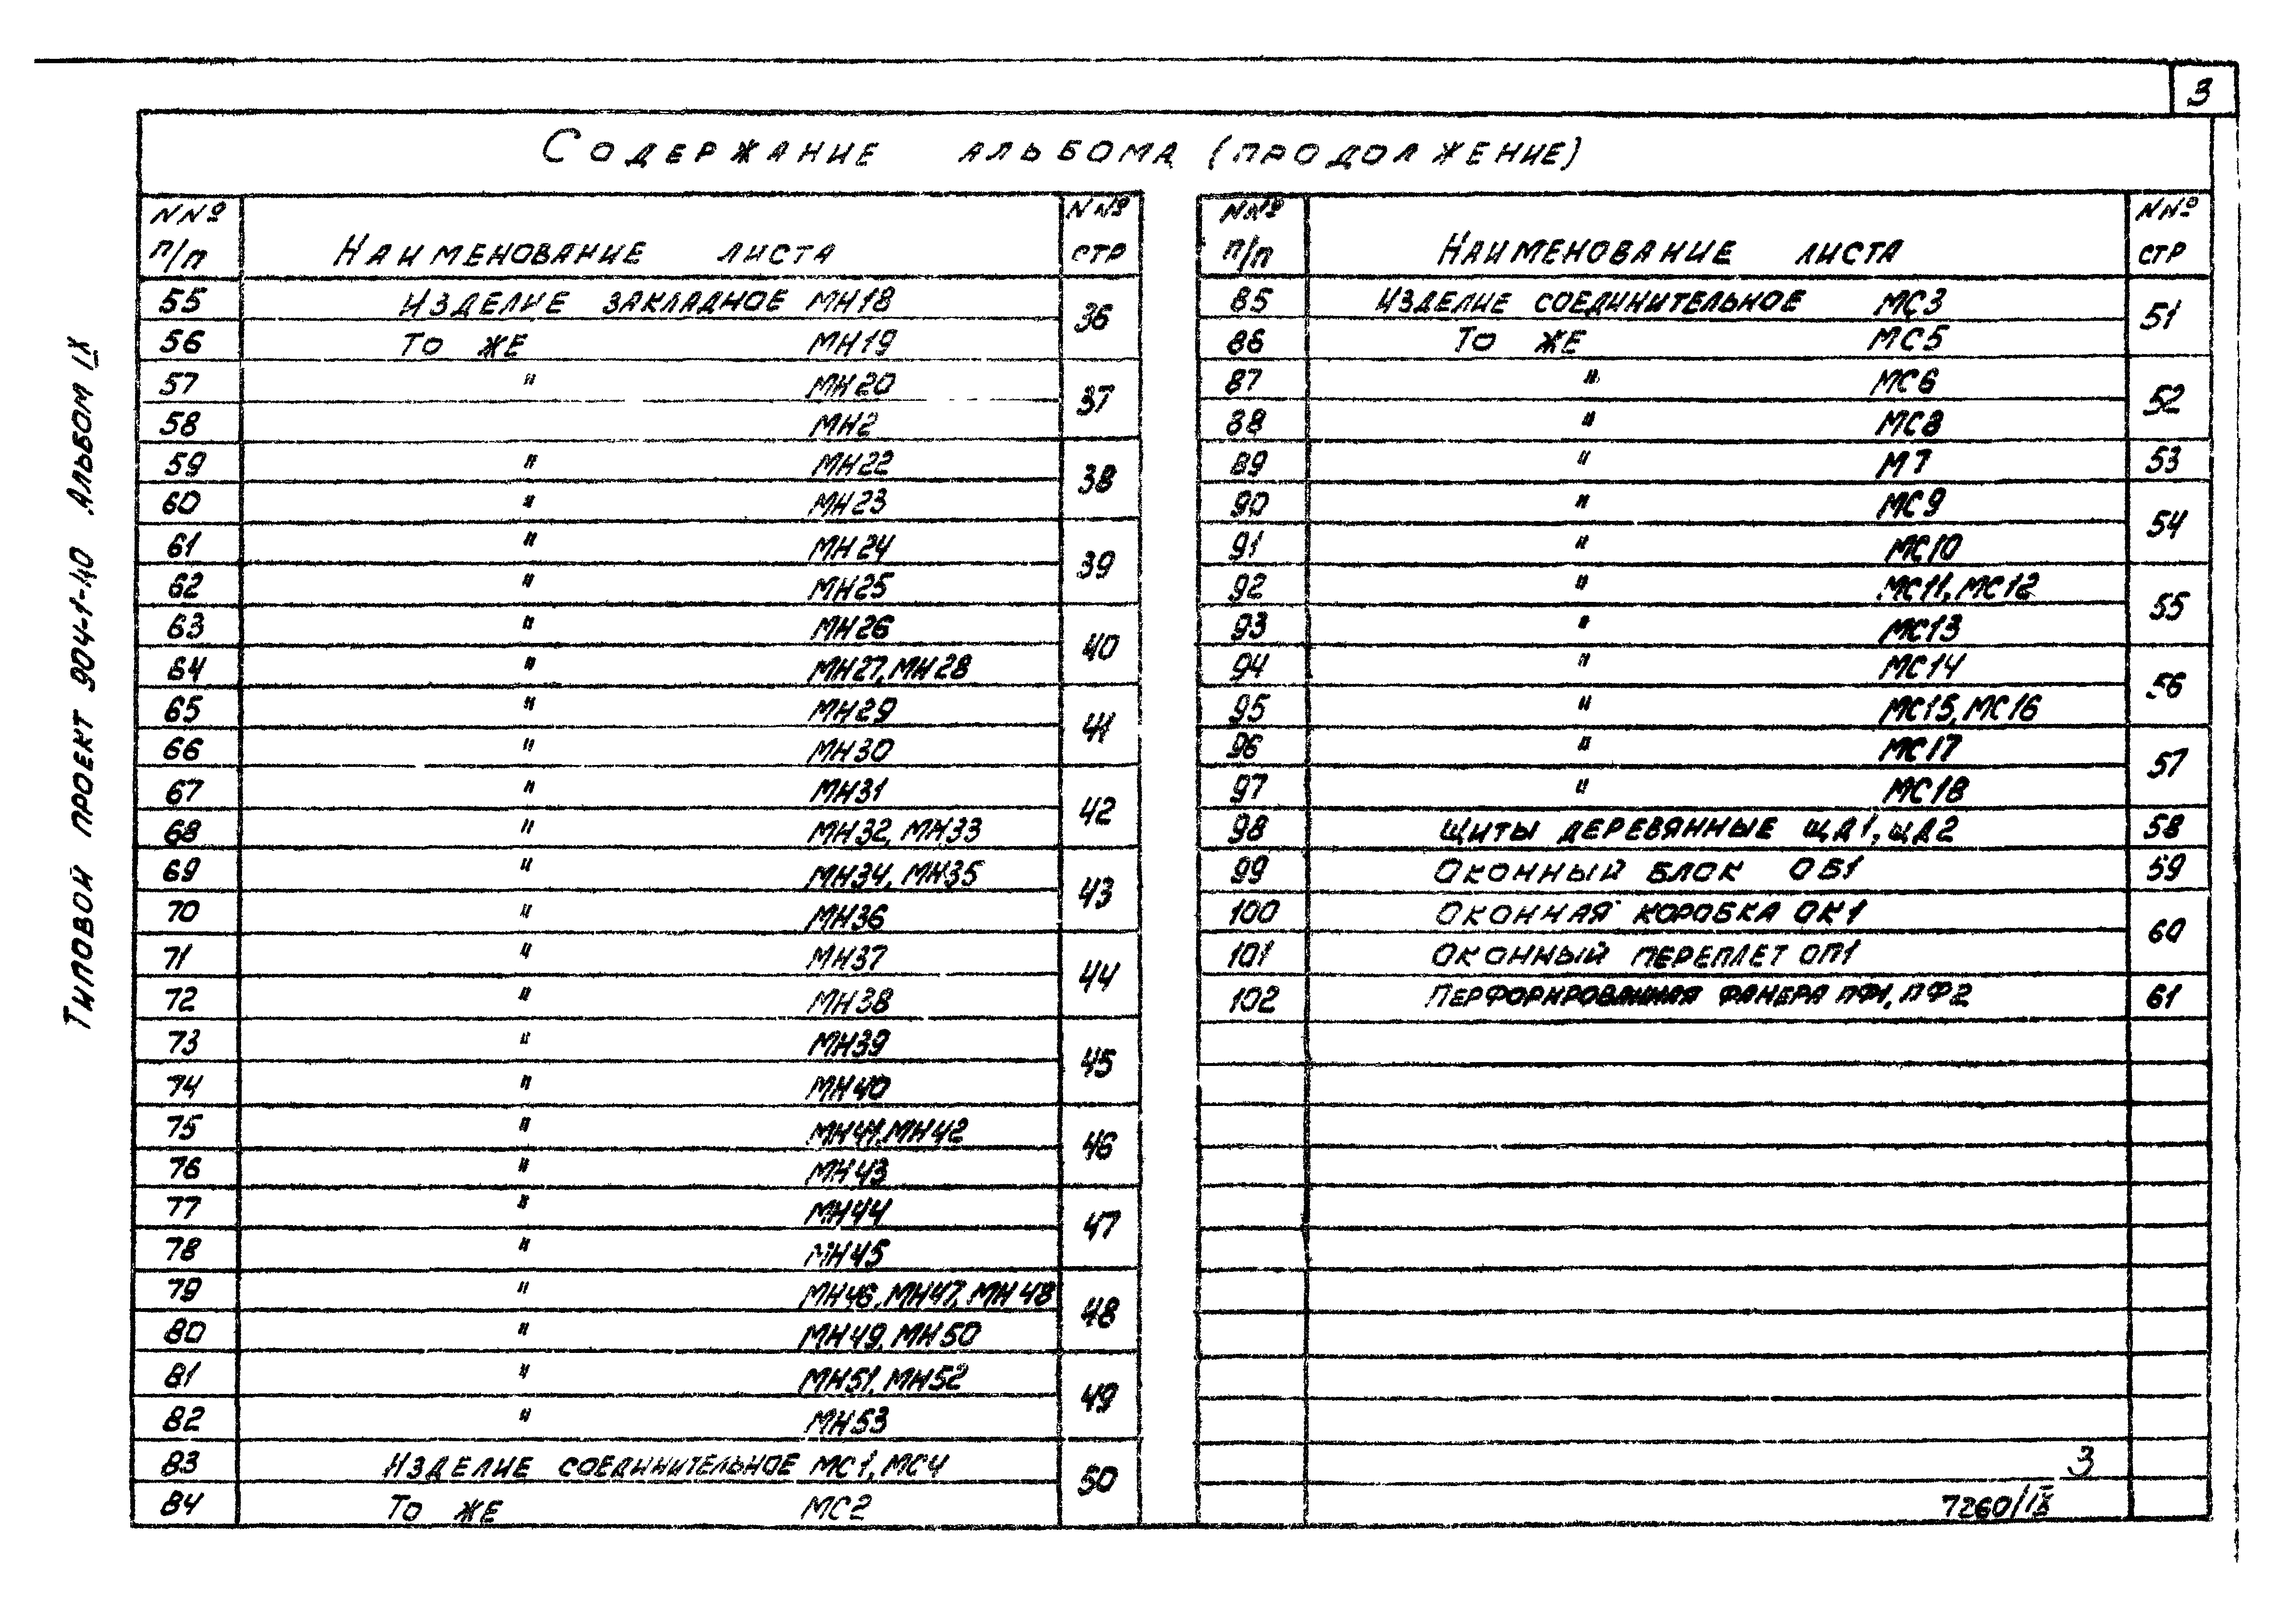 3
Содержание альбома (продолжение)
NNº п/п Наименование листа NNº стр
55 Изделие закладное МН18 36
56 То же МН19
57 " МН20 37
58 МН2
59 " МН22 38
60 " МН23
61 " МН24 39
62 " МН25
63 " МН26 40
64 " МН27, МН28
65 " МН29 41
66 " МН30
67 " МН31 42
68 " МН32, МН33
69 " МН34, МН35 43
70 " МН36
71 " МН37 44
72 " МН38
73 " МН39 45
74 " МН40
75 " МН41, МН42 46
76 " МН43
77 " МН44 47
78 " МН45
79 " МН46, МН47, МН48 48
80 " МН49, МН50
81 " МН51, МН52 49
82 " МН53
83 Изделие соединительное МС1, МС4 50
84 То же МС2
NNº п/п Наименование листа NNº стр
85 Изделие соединительное МС3 51
86 То же МС5
87 " МС6 52
88 " МС8
89 " М7 53
90 " МС9 54
91 " МС10
92 " МС11, МС12 55
93 " МС13
94 " МС14 56
95 " МС15, МС16
96 " МС17 57
97 " МС18
98 Щиты деревянные ЩД1, ЩД2 58
99 Оконный блок ОБ1 59
100 Оконная коробка ОК1 60
101 Оконный переплет ОП1
102 Перфорированная фанера ПФ1, ПФ2 61
3
7260/IX
Типовой проект 904-1-40 Альбом IX